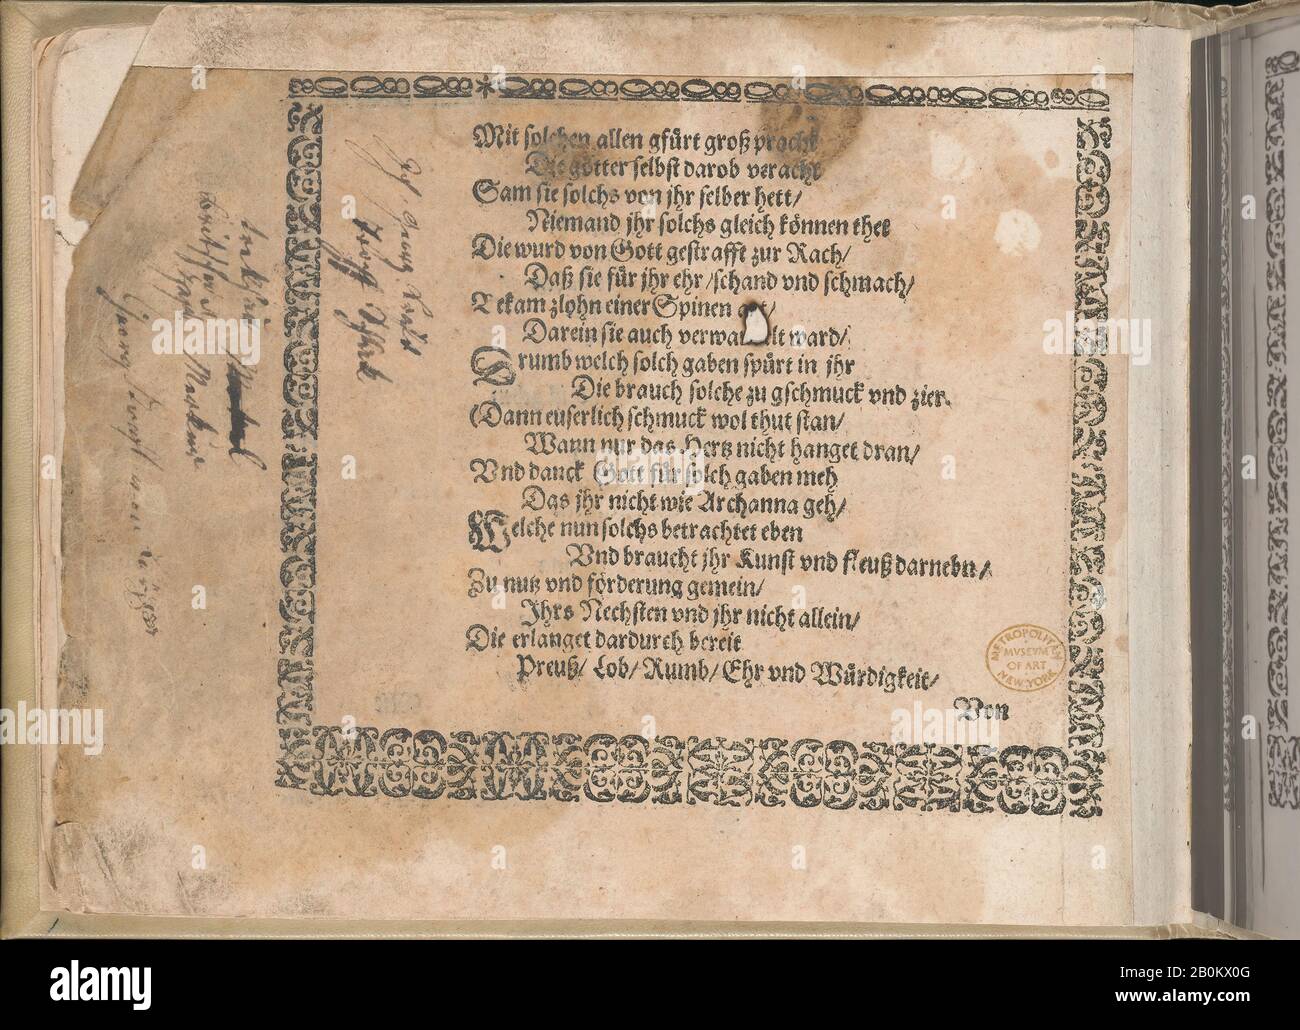 Mit solchen allen gfürt groß pracht
Die götter selbst darob veracht
Sam sie solchs von jhr selber hett/
Niemand jhr solchs gleich können thet
Die wurd von Gott gestrafft zur Rach/
Daß sie für jhr ehr/schand vnd schmach/
Bekam zlohn einer Spinen art/
Darein sie auch verwandelt ward/
Drumb welch solch gaben spürt in jhr
Die brauch solche zu gschmuck vnd zier.
(Dann euserlich schmuck wol thut stan/
Wann nur das Hertz nicht hanget dran/
Vnd danck Gott für solch gaben meh
Das jhr nicht wie Archanna geh/
Welche nun solchs betrachtet eben
Vnd braucht jhr Kunst vnd fleuß darnebn/
Zu nutz vnd förderung gemein/
Ihrs Nechsten vnd jhr nicht allein/
Die erlanget dardurch bereit
Preuß/ Lob/ Rumb/ Ehr vnd Würdigkeit/
Von
METROPOLITAN
MVSEVM
OF ART
NEW YORK
alamy
alamy
Image ID: 2B0KX0G
www.alamy.com